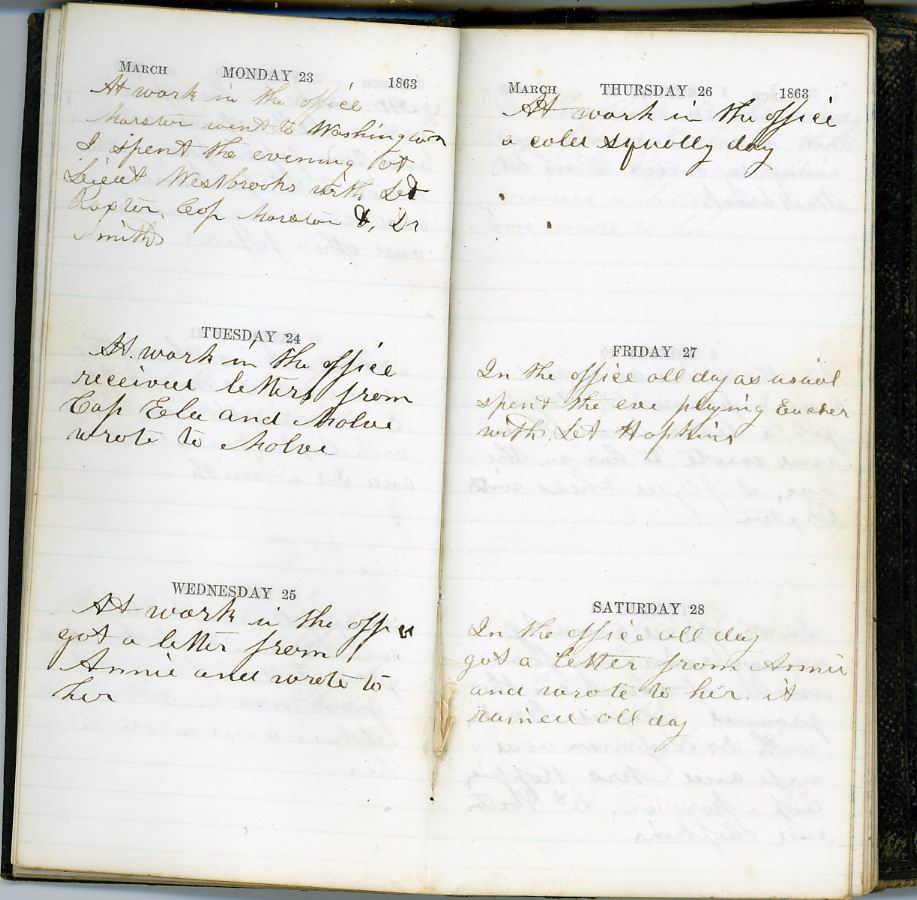 MARCH MONDAY 23 1863
At work in the office
Marston went to Washington
I spent the evening at
Lieut Westbrooks with Lt
Baxter, Cap Marston &, Dr
Smith
TUESDAY 24
At work in the office
received letters from
Cap Ela and
wrote to
WEDNESDAY 25
At work in the office
got a letter from
Annie and wrote to
her
MARCH THURSDAY 26 1863
At work in the office
a cold squally day
FRIDAY 27
In the office all day as usual
spent the eve playing Eucher
with Lt Hopkins
SATURDAY 28
In the office all day
got a letter from Annie
and wrote to her it
rained all day